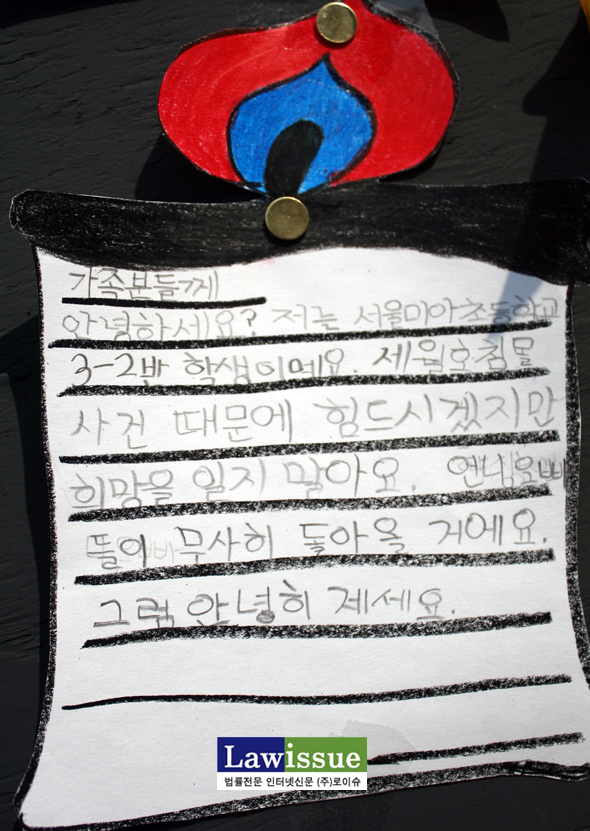 가족분들께
안녕하세요? 저는 서울미아초등학교
3-2반 학생이에요. 세월호침몰
사건 때문에 힘드시겠지만
희망을 잃지 말아요. 언니,오빠
들이 무사히 돌아올 거에요.
그럼 안녕히 계세요.
Lawissue
법률전문 인터넷신문 (주)로이슈